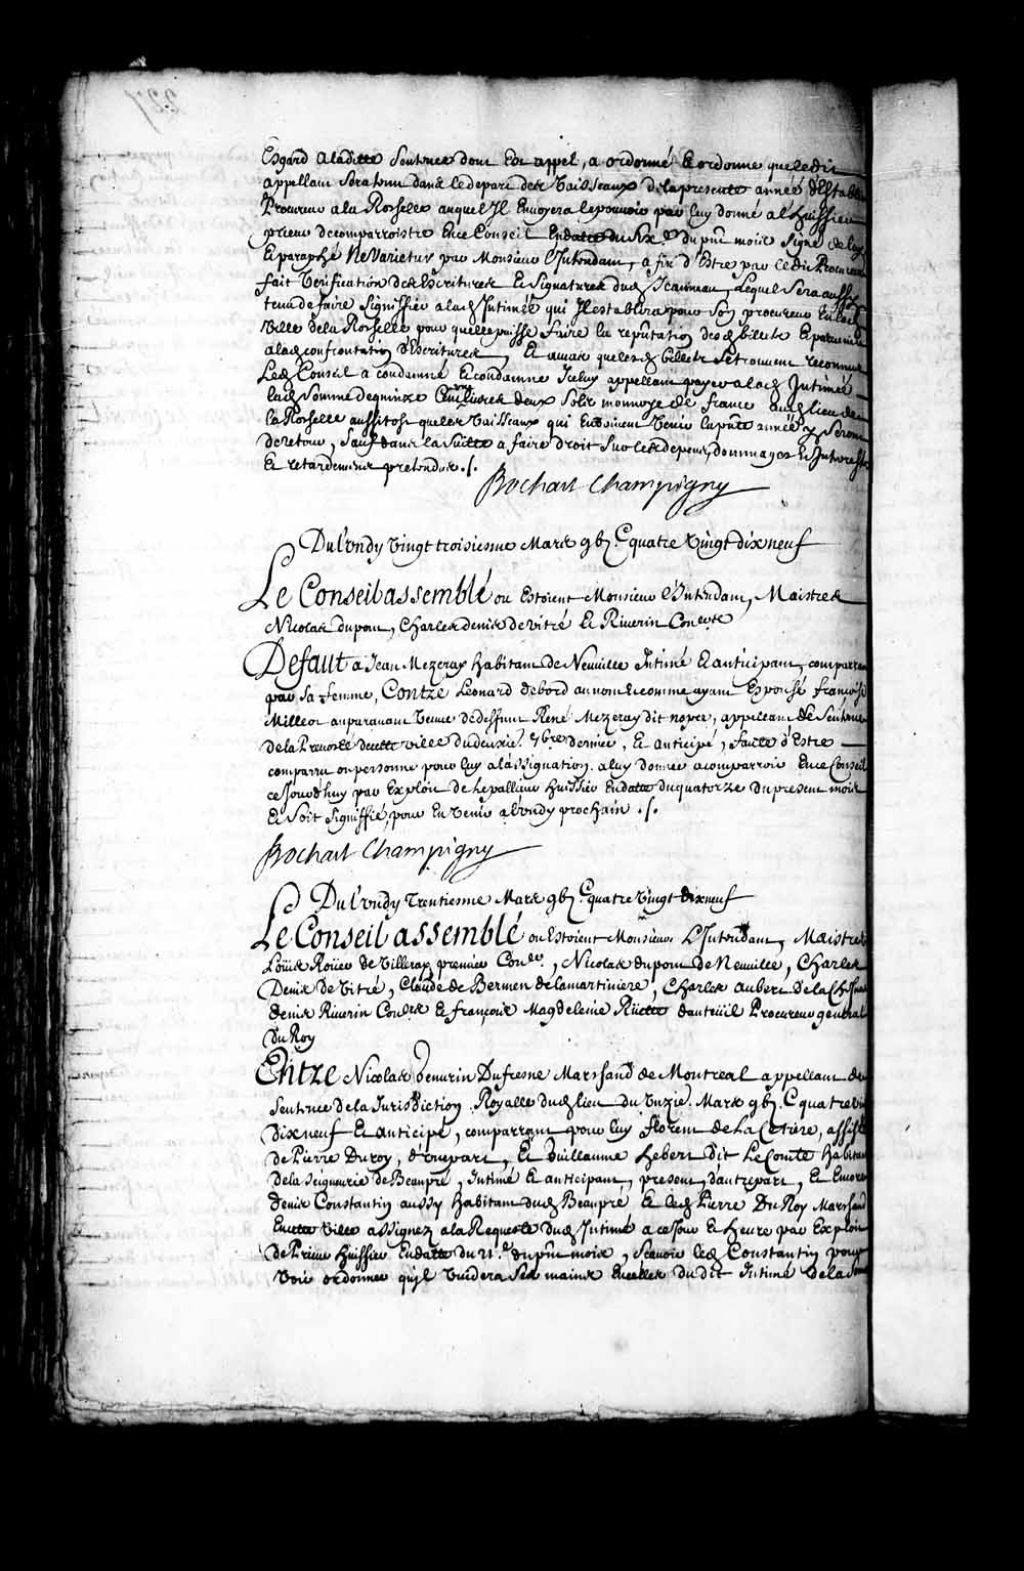 Esgard a ladite sentence dont est appel, a ordonné et ordonne que ledit
appellant sera tenu dans le depart des Vaisseaux de la presente année d'Establir
Procureur a la Rochelle auquel Il Envoyera le pouvoir par luy donné a l'huissier
prieur de comparroistre En ce Conseil En datte du six.e du pnt mois Signé de luy
Et paraphé Ne Varietur par Monsieur l'Intendant, a fin d'Estre par ledit Procureur
fait Verification des Escritures Et Signatures dud Jeanneau, lequel sera aussy
tenu de faire signiffier a lad Intimée qui Il establira pour son procureur En lad
Ville de la Rochelle pour quelle puisse faire la reputation desd billets
a lad confrontation d'Escritures, Et au cas que lesd billets se trouvent reconnus
Led Conseil a condamné Et condamne Iceluy appellant payer a lad Intimée
lad somme de quinze Cent livres deux sols monnoye de france aud lieu de
la Rochelle aussitost que les Vaisseaux qui En doivent Venir la pnte année y seront
de retour, Sauf dans la suitte a faire droit sur les depens, dommages Et Interests
Et retardement pretendus ./.
Bochart Champigny
Du lundy Vingt troisiesme Mars gbj.C quatre vingt dix neuf
Le Conseil assemblé ou Estoient Monsieur l'Intendant, Maistres
Nicolas dupont, Charles denis de Vitré Et Riverin Con.ers
Defaut a Jean Mezeray habitant de Neuville Intimé Et anticipant, comparant
par sa femme, Contre Leonard debord au nom Et comme ayant Espousé françoise
Millot auparavant Veuve de deffunt René Mezeray dit nopce, appellant de Sentence
de la Prevosté de cette Ville du deuxie. 7bre dernier, Et anticipé, faute d'Estre
comparu ou personne pour luy a l'assignation a luy donnée a comparroir En ce Conseil
ce Jourd'huy par Exploit de lepallieur huissier En datte du quatorze du present mois
Et soit signiffié, pour En Venir a lundy prochain ./.
Bochart Champigny
Du lundy Trentiesme Mars gbj.C quatre Vingt dix neuf
Le Conseil assemblé ou Estoient Monsieur L'Intendant, Maistres
Loüis Roüer de Villeray premier Con.er, Nicolas dupont de Neuville, Charles
Denis de Vitré, Claude de Bermen de la martiniere, Charles aubert de la Chesnaye
denis Riverin Con.ers Et françois Magdeleine Rüette dauteüil Procureur general
du Roy
Entre Nicolas Jenurin Dufresne Marchand de Montreal appellant de
Sentence de la Jurisdiction Royalle dud lieu du Unzie. Mars gbj.C quatre vingt
dix neuf Et anticipé, comparrant pour luy florent de la Cetiere, assisté
de Pierre Duroy, d'Une part, Et Guillaume hebert dit Le Comte habitant
de la Seigneurie de Beaupré, Intimé Et anticipant, present, d'autre part, Et Encore
denis Constantin aussy habitant dud Beaupré Et led Pierre Du Roy Marchand
En cette Ville assignez a la Requeste dud Intimé a ce Jour Et heure par Exploit
de Prieur huissier En datte du 21.e du pnt mois, Scavoir led Constantin pour
Voir ordonner qu'Il Vuidera ses mains En celles dudit Intimé de la somme